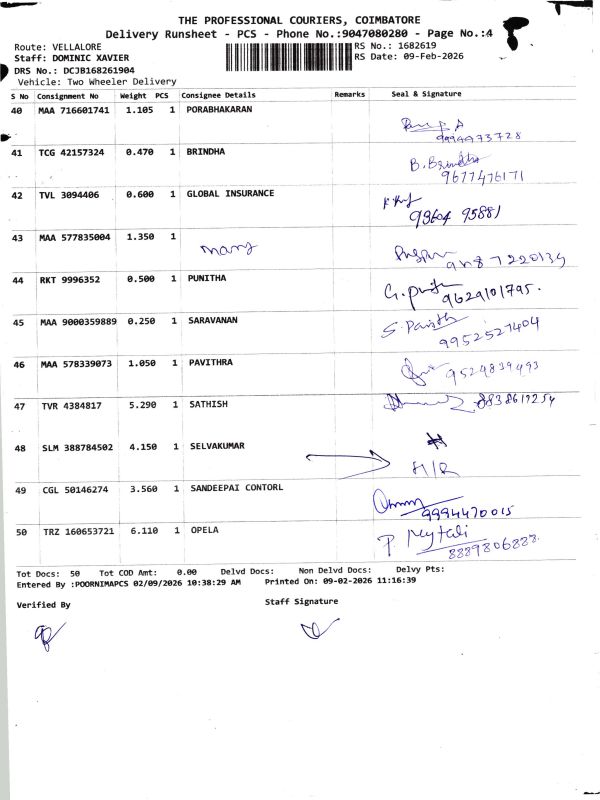 THE PROFESSIONAL COURIERS, COIMBATORE
Delivery Runsheet - PCS - Phone No.:9047080280 - Page No.:4
Route: VELLALORE
RS No.: 1682619
Staff: DOMINIC XAVIER
RS Date: 09-Feb-2026
DRS No.: DCJB168261904
Vehicle: Two Wheeler Delivery
S No Consignment No Weight PCS Consignee Details Remarks Seal & Signature
40 MAA 716601741 1.105 1 PORABHAKARAN
9994973728
41 TCG 42157324 0.470 1 BRINDHA
B. Brindha
9677476171
42 TVL 3094406 0.600 1 GLOBAL INSURANCE
93604 95881
43 MAA 577835004 1.350 1
44 RKT 9996352 0.500 1 PUNITHA
9629101795.
45 MAA 9000359889 0.250 1 SARAVANAN
9952527404
46 MAA 578339073 1.050 1 PAVITHRA
9524839493
47 TVR 4384817 5.290 1 SATHISH
8838619254
48 SLM 388784502 4.150 1 SELVAKUMAR
H/R
49 CGL 50146274 3.560 1 SANDEEPAI CONTORL
9994470015
50 TRZ 160653721 6.110 1 OPELA
8889806888.
Tot Docs: 50 Tot COD Amt: 0.00 Delvd Docs: Non Delvd Docs: Delvy Pts:
Entered By :POORNIMAPCS 02/09/2026 10:38:29 AM Printed On: 09-02-2026 11:16:39
Verified By
Staff Signature